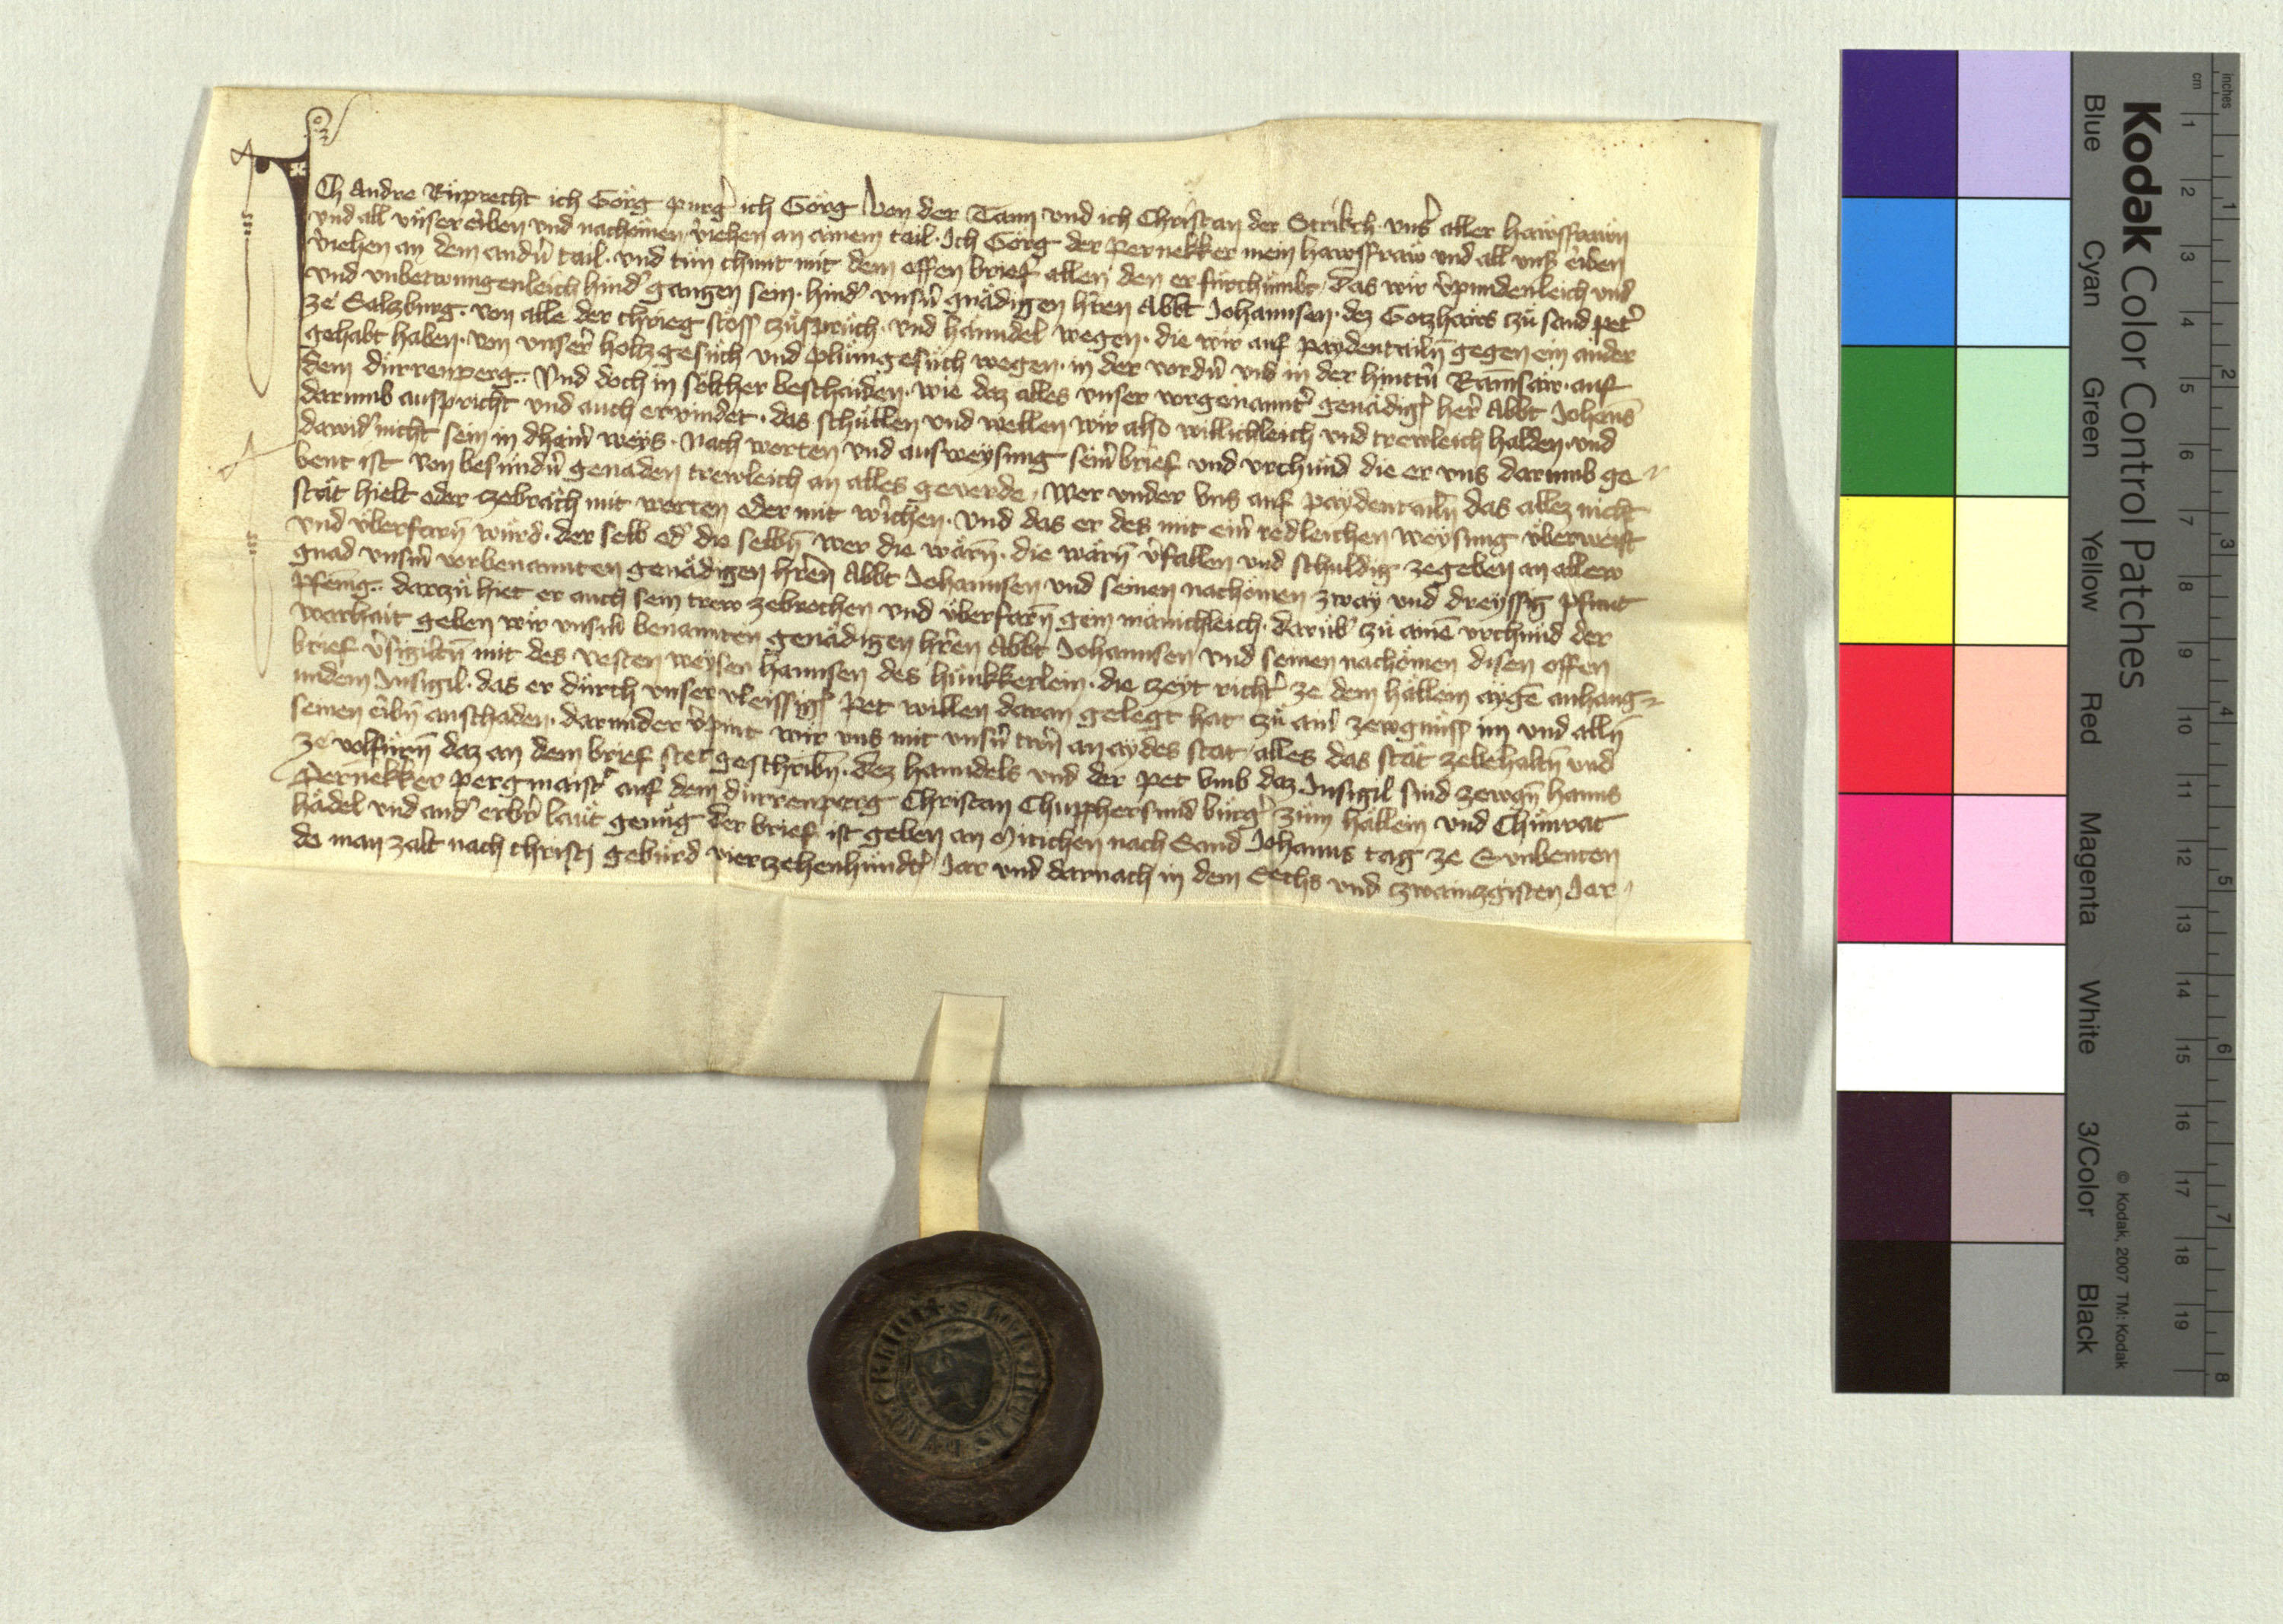 Ich Andre Ruͤprecht ich Goͤrg purgˀ ich Goͤrg von der Tann vnd ich Christan der Strikch vnsˀ aller hawsfrawn
vnd all vnser eriben vnd nachomen veriehen an ainem tail. Ich Goͤrg der Pernekker mein hawsfraw vnd all vnsˀ eriben
veriehen an dem andˀn tail. vnd tun chunt mit dem offen brief allen den er fürchumbt, das wir vˀpundenleich vnd
vnd vnbetwungenleich hindˀ gangen sein. hindˀ vnsˀn gnädigen hˀren Abbt Johannsen. dez Gotzhaws zu sand Petˀ
ze Salzburg. von alle der chrieg stoͤss zuͤspruͤch. vnd hanndel wegen. die wir auf paydentailn̄ gegen ein ander
gehabt haben. von vnserˀ holtzgesuͤch vnd pluͤmgesuͤch wegen. in der vordˀn vnd in der hinttˀn Ramsaw. auf
dem durrenperg. Vnd doch in soͤlcher beschaiden. wie daz alles vnser vorgenanntˀ genädigˀ herˀ Abbt Johāns
darumb auspricht vnd auch ervindet. das schullen vnd wellen wir also willichleich vnd trewleich halden. vnd
dawidˀ nicht sein in dhainˀ weys. Nach worten vnd ausweysung seinˀ brief vnd vrchund die er vns darumb ge-
bent ist von besundˀn genaden trewleich an alles geverde. Wer vnder vns auf paydentailn̄ das allez nicht
stät hielt oder zebräch mit worten oder mit werichen. vnd das er des mit einˀ redleichen weysung uberweist
vnd uberfarn̄ wurd. der selb odˀ die selbn̄ wer die wärn̄. die wärn̄ vˀfallen vnd schuldig zegeben an allew
gnad vnsˀm vorbenannten genädigen hˀren Abbt Johannsen vnd seinen nachomen zway vnd dreyssig pfunt
pfenīg. darzu hiet er auch sein trew zebrochen vnd uberfarn̄ gein mänichleich. darubˀ zu ainē vrchund der
warhait geben wir vnsˀm benannten genädigen hˀren Abbt Johannsen vnd seinen nachomen disen offen
brief vˀsigiltn̄ mit des vesten weysen Hannsen des hünkkerlein. die zeyt richtˀ ze dem hällein aygē anhang-
undem Insigil. das er durch vnser vleissigˀ pet willen daran gelegt hat zu ainˀ zewgnuss im vnd alln̄
seinen eribn̄ anschaden. darunder vˀpint wir vns mit vnsˀn trwn̄ an aydes stat, alles das stät zebehaltn̄ vnd
ze volfürn̄ daz an dem brief stet geschribn̄. dez hanndels vnd der pet vmb daz Insigil sind zewgn̄ hanns
Pernekker pergmaistˀ auf dem durrenperg Christan Chupphersmid burgˀ zum hällein vnd Chunrat
hädel vnd andˀ erbˀr lawt genug der brief ist geben an Mitichen nach Sand Johanns tag ze Sunbenten
do man zalt nach christi geburd vierzehenhundtˀ Jar vnd darnach in dem Sechs vnd zwainzgisten Jar
Kodak Color Control Patches
Blue Cyan Green Yellow Red Magenta White 3/Color Black
© Kodak, 2007 TM: Kodak
inches 1 2 3 4 5 6 7 8
cm 1 2 3 4 5 6 7 8 9 10 11 12 13 14 15 16 17 18 19